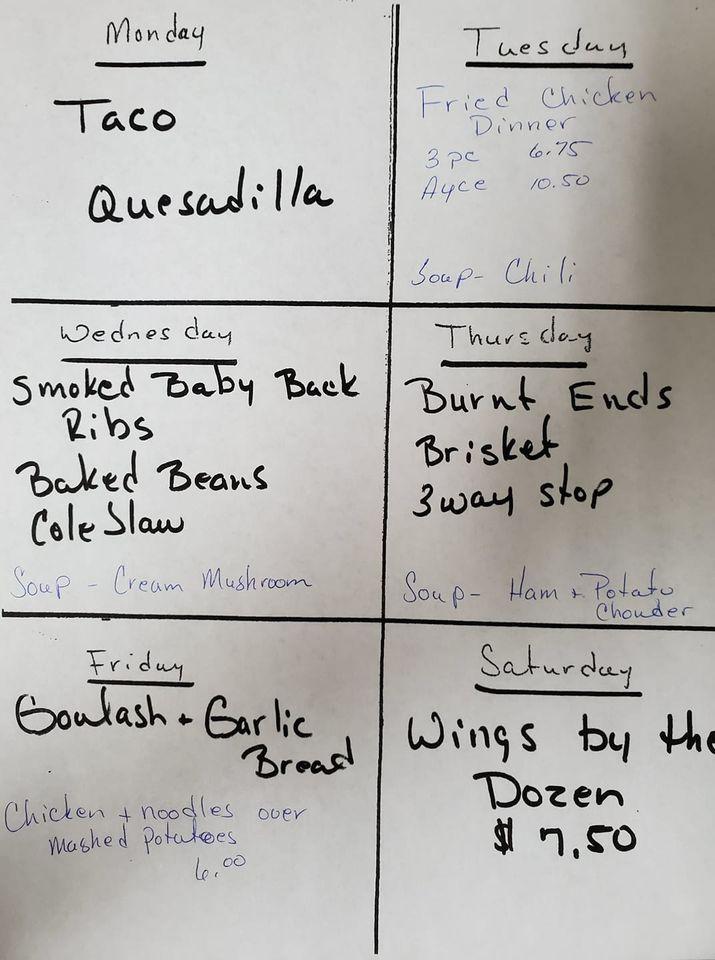 Monday
Taco
Quesadilla
Tuesday
Fried Chicken
Dinner
3 pc 6.75
Ayce 10.50
Soup - Chili
Wednesday
Smoked Baby Back
Ribs
Baked Beans
Cole Slaw
Soup - Cream Mushroom
Thursday
Burnt Ends
Brisket
3 way stop
Soup - Ham + Potato
Chowder
Friday
Goulash + Garlic
Bread
Chicken + noodles over
mashed potatoes
6.00
Saturday
Wings by the
Dozen
$ 7.50